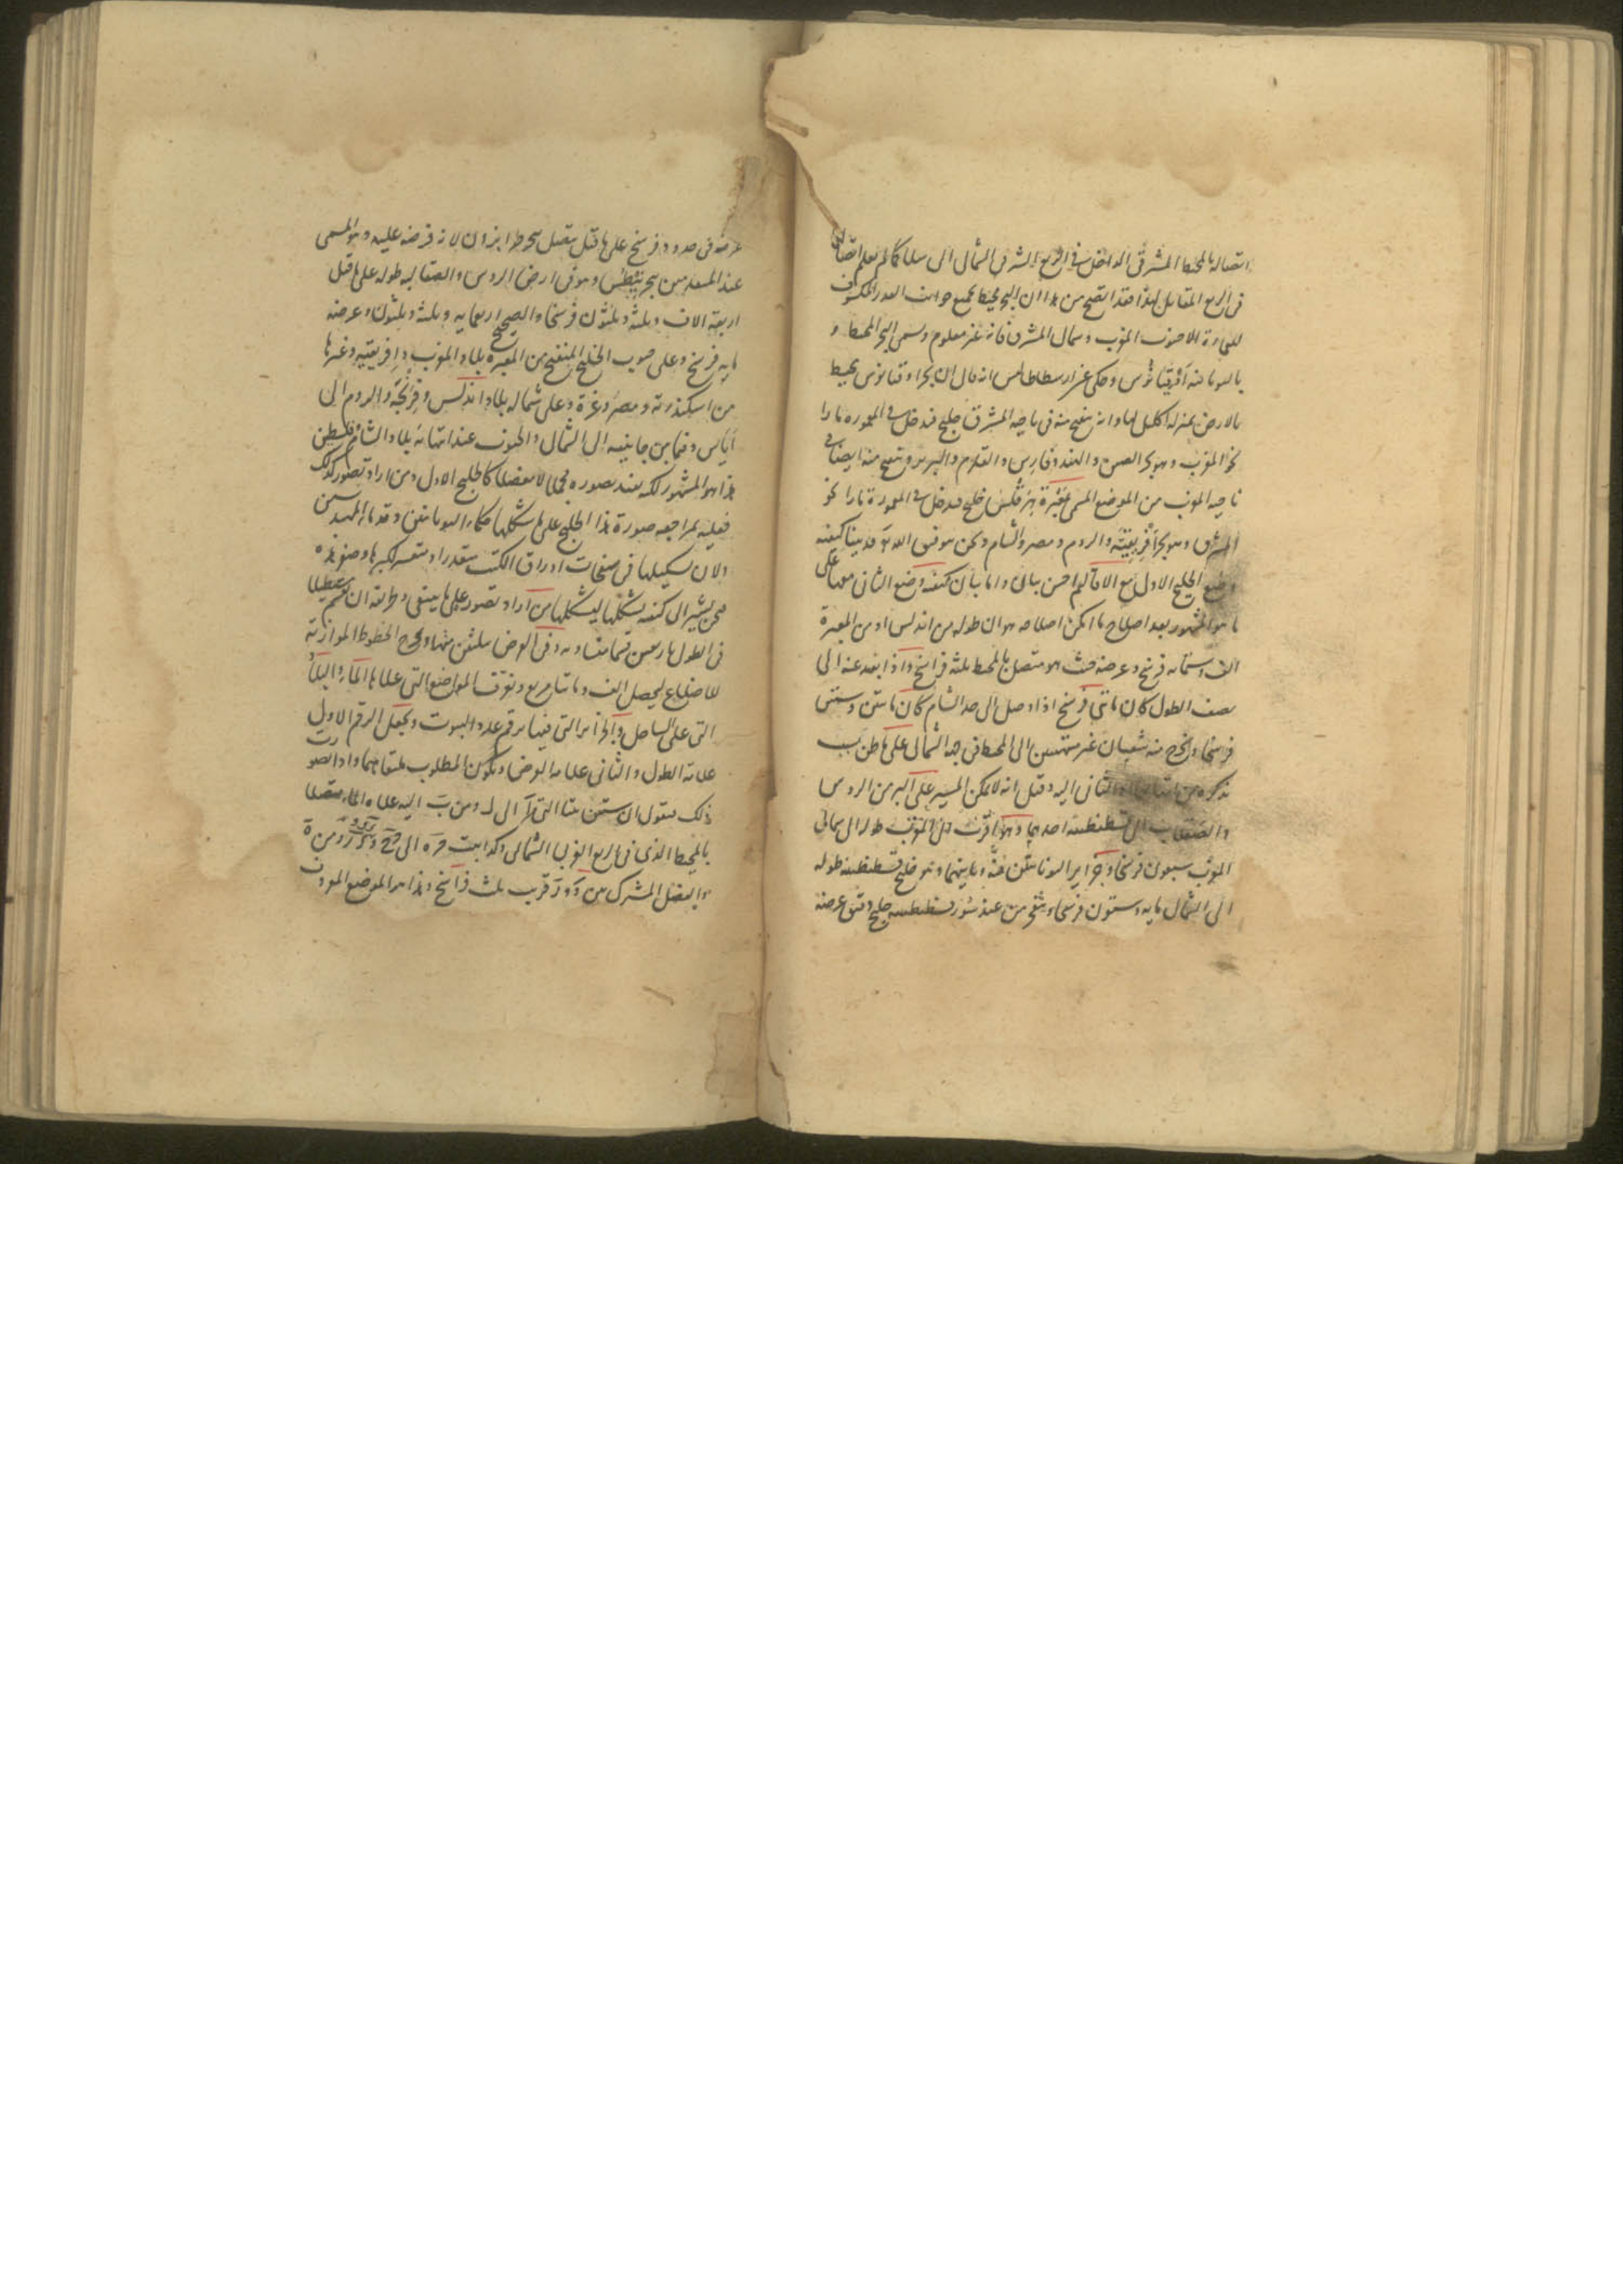 اتصاله بالمحيط المشرقى الداخل فى الربع الشرقى الشمالى كما لم يعلم اتصال
فى الربع المقابل لهذا فقد اتضح من هذا ان البحر محيط بجميع جوانب القدر المكشوف
للعمارة الا جنوب المغرب وشمال المشرق فانه غير معلوم ويسمى البحر المحيط و
باليونانية اوقيانوس وحكى عن ارسطاطاليس انه قال ان بحر اوقيانوس محيط
بالارض بمنزلة اكليل لها وانه ينفتح منه فى ناحية المشرق خليج فيدخل فى المعمورة مارا
نحو المغرب وهو بحر الصين والهند وفارس والقلزم والبربر وينفتح منه ايضا فى
ناحية المغرب من الموضع المسمى معبرة هرقلس خليج فيدخل فى المعمورة مارا نحو
المشرق وهو بحر افريقية والروم ومصر والشام ونحن بتوفيق الله تعالى قد بينا كيفية
وضع الخليج الاول مع الاقاليم احسن بيان واما بيان كيفية وضع الثانى معها على
ما هو المشهور بعد اصلاح ما امكن اصلاحه هو ان طوله من اندلس او من المعبرة
الف وستمايه فرسخ وعرضه حيث هو متصل بالمحيط ثلثة فراسخ واذا بعد عنه الى
نصف الطول كان مائتى فرسخ اذا وصل الى حد الشام كان مائتين وستين
فرسخا ويخرج منه شعبتان غير منتهيتين الى المحيط فى جهة الشمال على ما ظن بسبب
نذكره من الثانى اليه وقيل انه لا يمكن المسير على البر من الروس
والصقلاب الى قسطنطنية احديهما وهو اقرب الى المغرب طوله الى شمالى
المغرب سبعون فرسخا وجزاير اليونانيين فيه وثانيتهما وهو خليج قسطنطنية طوله
الى الشمال مايه وستون فرسخا وينفتح من عند سور قسطنطنية خليج دقيق عرضه
عرضه فى حدود فرسخ على ما قيل يتصل ببحر طرابزون لانه فرضة عليه وهو المسمى
عند المتقدمين ببحر نيطس وهو فى ارض الروس والصقالبة طوله على ما قيل
اربعة الاف وثلثه وثلثون فرسخا والصحيح اربعمايه وثلثة وثلثون وعرضه
مايه فرسخ وعلى جنوب الخليج المنفتح من المعبرة بلاد المغرب وافريقيه وغيرها
من اسكندرية ومصر وغزة وعلى شماله بلاد اندلس وفرنجة والروم الى
اياس وفيما بين جانبيه الى الشمال والجنوب عند انتهائه بلاد الشام وفلسطين
هذا هو المشهور لكنه يفيد تصوره مجملا لا مفصلا كالخليج الاول ومن اراد تصوره كذلك
فعليه بمراجعة صورة هذا الخليج على ما شكلها حكماء اليونانيين وقدماء المهندسين
ولان تشكيلها فى صفحات اوراق الكتب متعذر او متعسر لكبرها وصغر هذه
فنحن نشير الى كيفية تشكلها ليشكلها من اراد تصوره على ما ينبغى وطريقه ان يقسم مستطيلا
فى الطول باربعين قسما متساوية وفى العرض بثلثين منها ويخرج الخطوط الموازية
للاضلاع ليحصل الف ومائتا مربع ونعرف المواضع التى عليها الماء والبلاد
التى على الساحل والجزاير التى فيها برقم عدد البيوت ونجعل الرقم الاول
علامة الطول والثانى علامة العرض ويكون المطلوب ملتقاهما واذا تصورت
ذلك فنقول ان ستين بيتا التى الى ومن اليه علامة الماء متصلا
بالمحيط الذى فى الربع الغربى الشمالى وكذا بيت الى ومن
والفصل المشترك بين قريب ثلث فراسخ وهذا هو الموضع المعروف